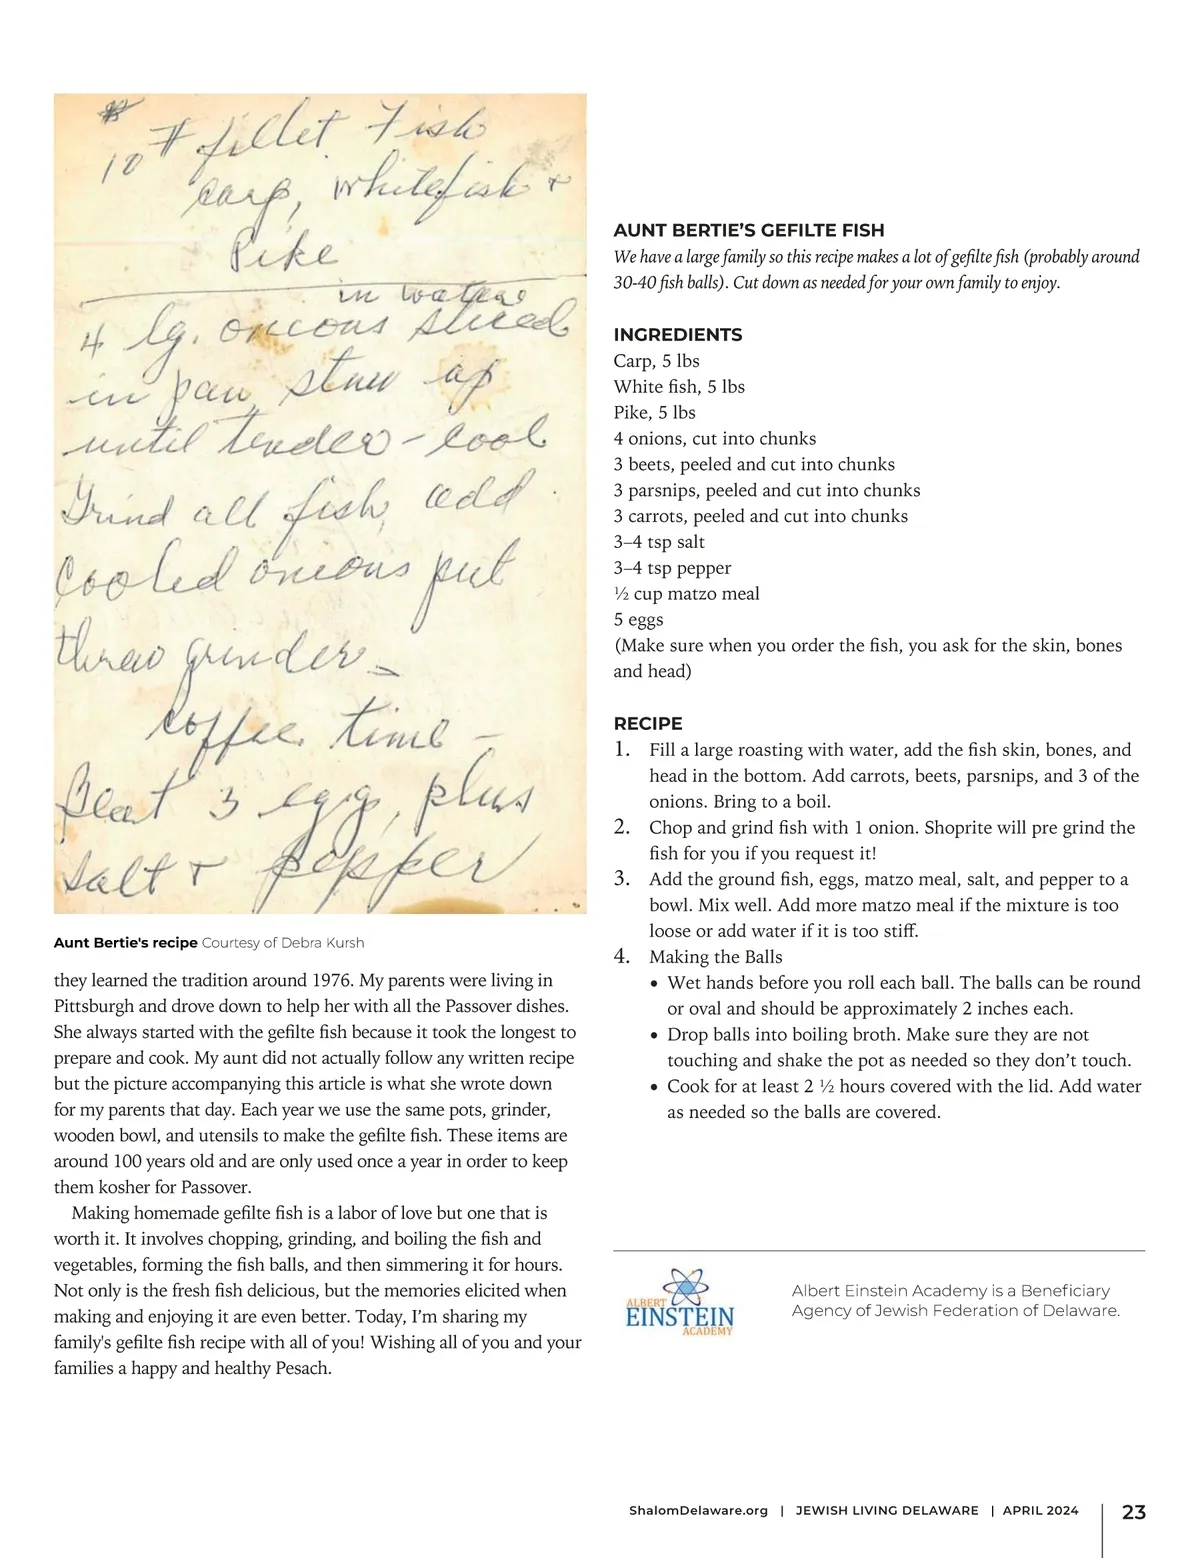 10 # fillet Fish
carp, whitefish +
Pike
in water
4 lg. onions sliced
in pan, stew up
until tender - cool
Grind all fish, add
cooled onions put
threw grinder -
coffee time -
Beat 3 egg, plus
salt + pepper
Aunt Bertie's recipe Courtesy of Debra Kursh
they learned the tradition around 1976. My parents were living in
Pittsburgh and drove down to help her with all the Passover dishes.
She always started with the gefilte fish because it took the longest to
prepare and cook. My aunt did not actually follow any written recipe
but the picture accompanying this article is what she wrote down
for my parents that day. Each year we use the same pots, grinder,
wooden bowl, and utensils to make the gefilte fish. These items are
around 100 years old and are only used once a year in order to keep
them kosher for Passover.
Making homemade gefilte fish is a labor of love but one that is
worth it. It involves chopping, grinding, and boiling the fish and
vegetables, forming the fish balls, and then simmering it for hours.
Not only is the fresh fish delicious, but the memories elicited when
making and enjoying it are even better. Today, I’m sharing my
family's gefilte fish recipe with all of you! Wishing all of you and your
families a happy and healthy Pesach.
AUNT BERTIE’S GEFILTE FISH
We have a large family so this recipe makes a lot of gefilte fish (probably around
30-40 fish balls). Cut down as needed for your own family to enjoy.
INGREDIENTS
Carp, 5 lbs
White fish, 5 lbs
Pike, 5 lbs
4 onions, cut into chunks
3 beets, peeled and cut into chunks
3 parsnips, peeled and cut into chunks
3 carrots, peeled and cut into chunks
3–4 tsp salt
3–4 tsp pepper
½ cup matzo meal
5 eggs
(Make sure when you order the fish, you ask for the skin, bones
and head)
RECIPE
1. Fill a large roasting with water, add the fish skin, bones, and
head in the bottom. Add carrots, beets, parsnips, and 3 of the
onions. Bring to a boil.
2. Chop and grind fish with 1 onion. Shoprite will pre grind the
fish for you if you request it!
3. Add the ground fish, eggs, matzo meal, salt, and pepper to a
bowl. Mix well. Add more matzo meal if the mixture is too
loose or add water if it is too stiff.
4. Making the Balls
• Wet hands before you roll each ball. The balls can be round
or oval and should be approximately 2 inches each.
• Drop balls into boiling broth. Make sure they are not
touching and shake the pot as needed so they don’t touch.
• Cook for at least 2 ½ hours covered with the lid. Add water
as needed so the balls are covered.
ALBERT
EINSTEIN
ACADEMY
Albert Einstein Academy is a Beneficiary
Agency of Jewish Federation of Delaware.
ShalomDelaware.org | JEWISH LIVING DELAWARE | APRIL 2024 23